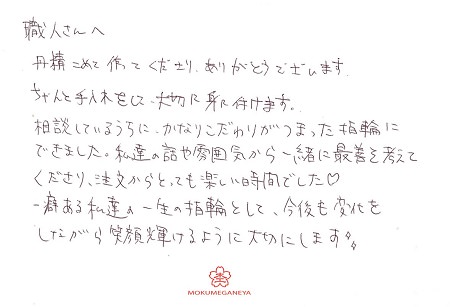 職人さんへ
丹精こめて作ってくださり、ありがとうございます。
ちゃんと手入れをして、大切に身に付けます。
相談しているうちに、かなりこだわりがつまった指輪に
できました。私達の話や雰囲気から一緒に最善を考えて
くださり、注文からとっても楽しい時間でした♡
一癖ある私達の一生の指輪として、今後も変化を
しながら笑顔輝けるように大切にします
MOKUMEGANEYA